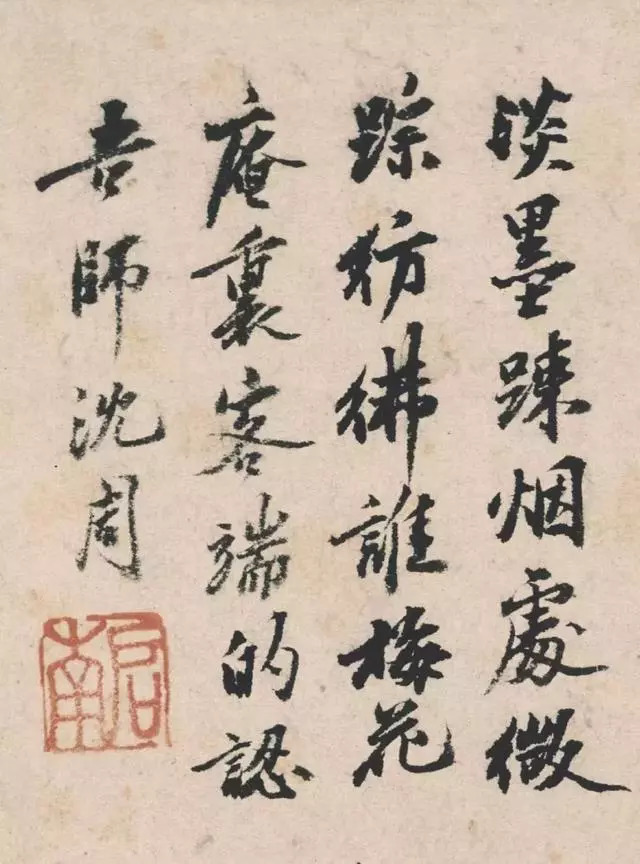 淡墨踈烟處微
踪彷彿誰梅花
庵裏客端的認
吾師沈周
啟南